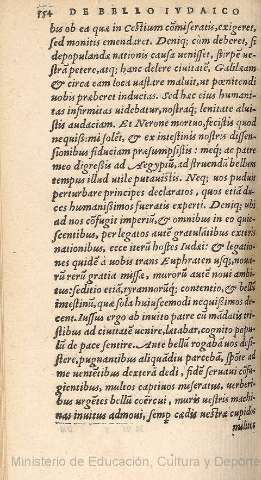 354 DE BELLO IVDAICO
bus ob ea quæ in Cestium cõmiseratis, exigeret,
sed monitis emendaret. Deniq; cùm deberet, si
depopulandæ nationis causa uenisset, stirpē ue-
strā petere, atq; hanc delere ciuitatē, Galilæam
& circa eam loca uastare maluit, ut pœnitendi
uobis præberet inducias. Sed hæc eius humani-
tas infirmitas uidebatur, nostraq́; lenitate aluis-
tis audaciam. Et Nerone mortuo, fecistis quod
nequissimi solēt, & ex intestinis nostris dissen-
sionibus fiduciam præsumpsistis: meq; ac patre
meo digressis ad Aegyptū, ad struenda bellum
tempus illud utile putauistis. Neq; uos puduit
perturbare principes declaratos, quos etiā du-
ces humanissimos fueratis experti. Deniq; ubi
ad nos cōfugit imperiū, & omnibus in eo quie-
scentibus, per legatos autē gratulātibus exteris
nationibus, ecce iterū hostes Iudæi: & legatio-
nes quidē à uobis trans Euphraten usq; noua-
rū rerū gratia missæ, murorū autē noui ambi-
tus: seditio etiā, tyrannorūq; contentio, & bellū
intestinū, quæ sola huiuscemodi nequissimos de-
cent. Iussus ergo ab inuito patre cū mādatis tri-
stibus ad ciuitatē uenire, lætabar, cognito popu-
lū de pace sentire. Ante bellū rogabā uos desi-
stere, pugnantibus aliquādiu parcebā, spōte ad
me uenētibus dexterā dedi, fidē seruaui cōfu-
gientibus, multos captiuos miseratus, uerberi-
bus urgētes bellū coërcui, muris uestris machi-
nas inuitus admoui, semp cædis uestræ cupidos
milites
Ministerio de Educación, Cultura y Deporte